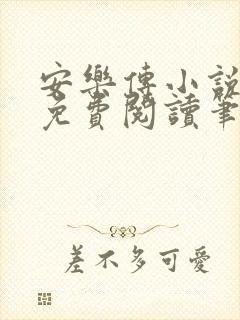 安樂傳小說
免費閱讀筆
差不多可愛